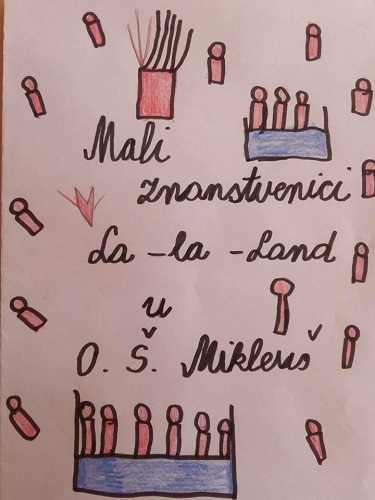 Mali
znanstvenici
La-la-Land
u
O. Š. Mikleuš